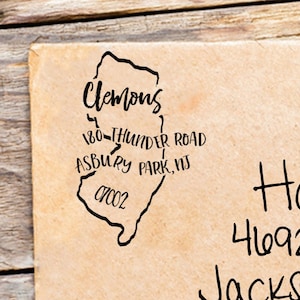 Clemons
180 THUNDER ROAD
ASBURY PARK, NJ
07002
Ho
4692
Jacks